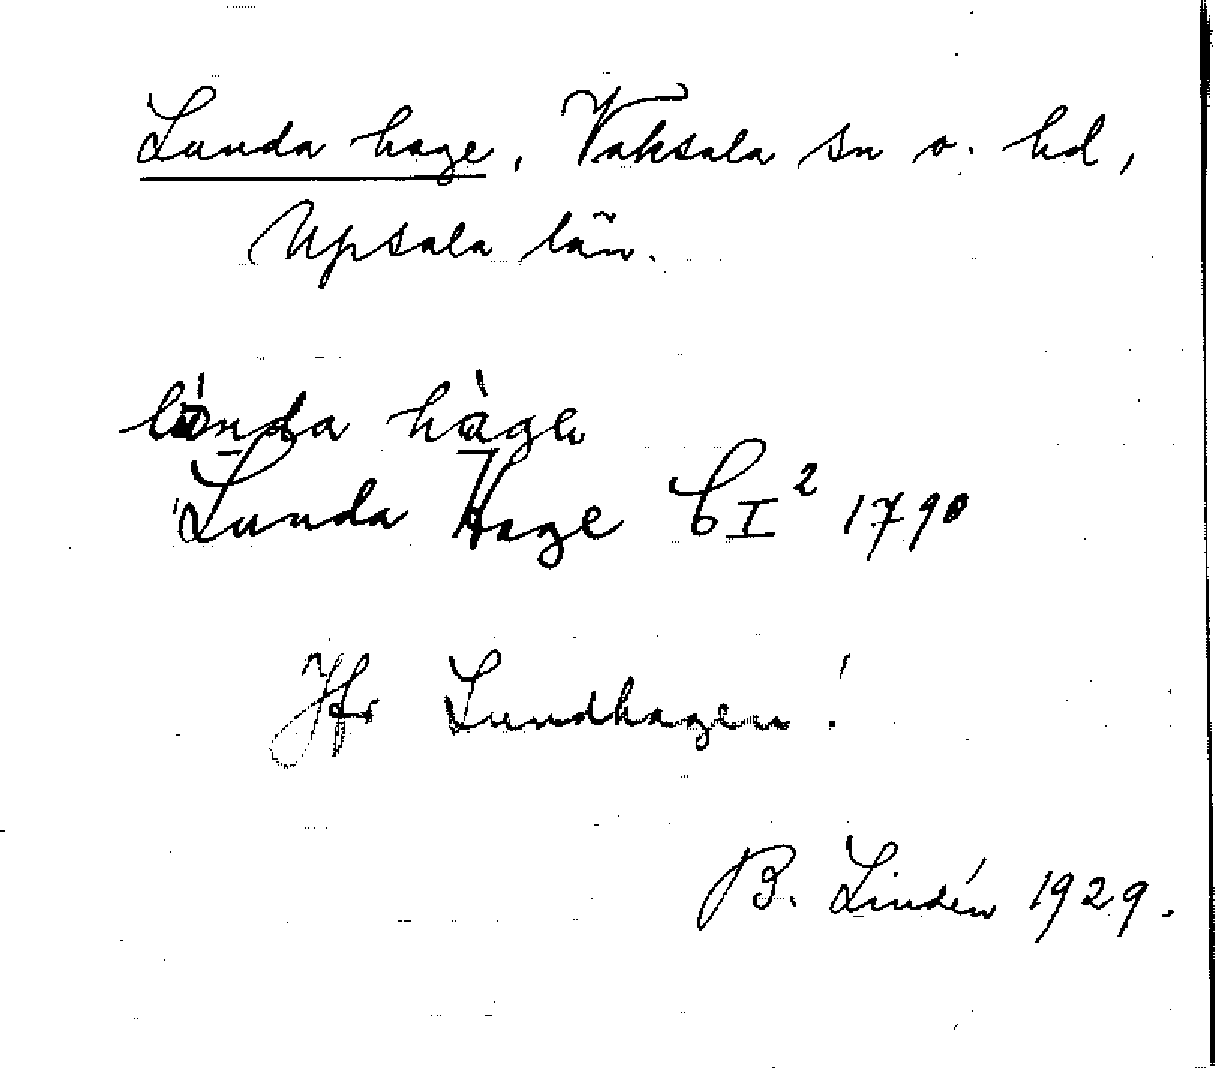 Lunda hage, Vaksala sn o. hd,
Upsala län.
hàge
Lunda Hage I² 1790
Jfr Lundhagen!
B. Lindén 1929.